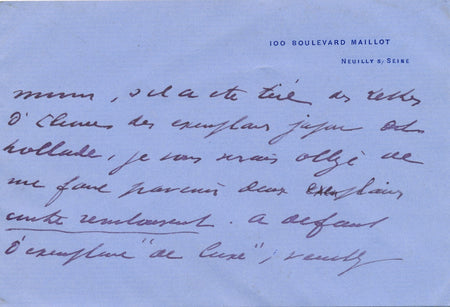 100 BOULEVARD MAILLOT
NEUILLY S/ SEINE
s'il a été tiré des
d' des exemplaires japon ou
hollande, je vous serais obligé de
me faire parvenir deux exemplaires
contre remboursement. à défaut
d'exemplaire "de luxe", veuillez